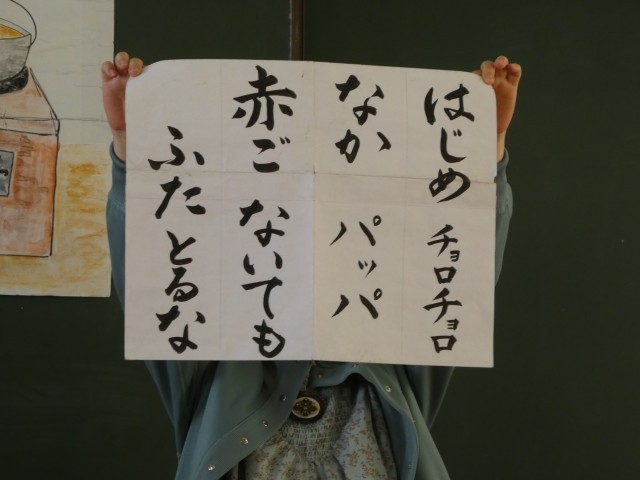 はじめ チョロチョロ
なか パッパ
赤ご ないても
ふた とるな